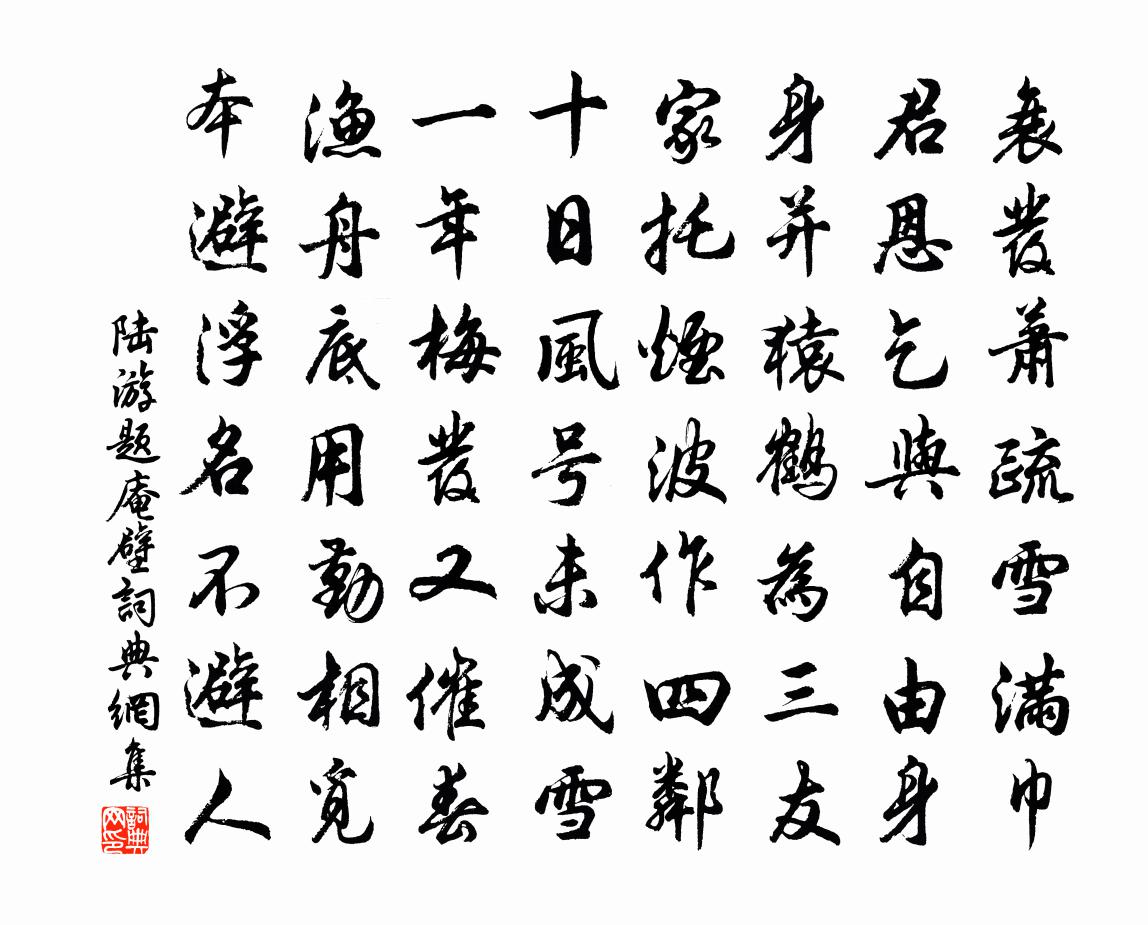 衰發蕭疏雪滿巾
君恩乞與自由身
身并猿鶴為三友
家托煙波作四鄰
十日風号未成雪
一年梅發又催春
漁舟底用勤相覓
本避浮名不避人
陆游题庵壁詞典網集
詞典网印